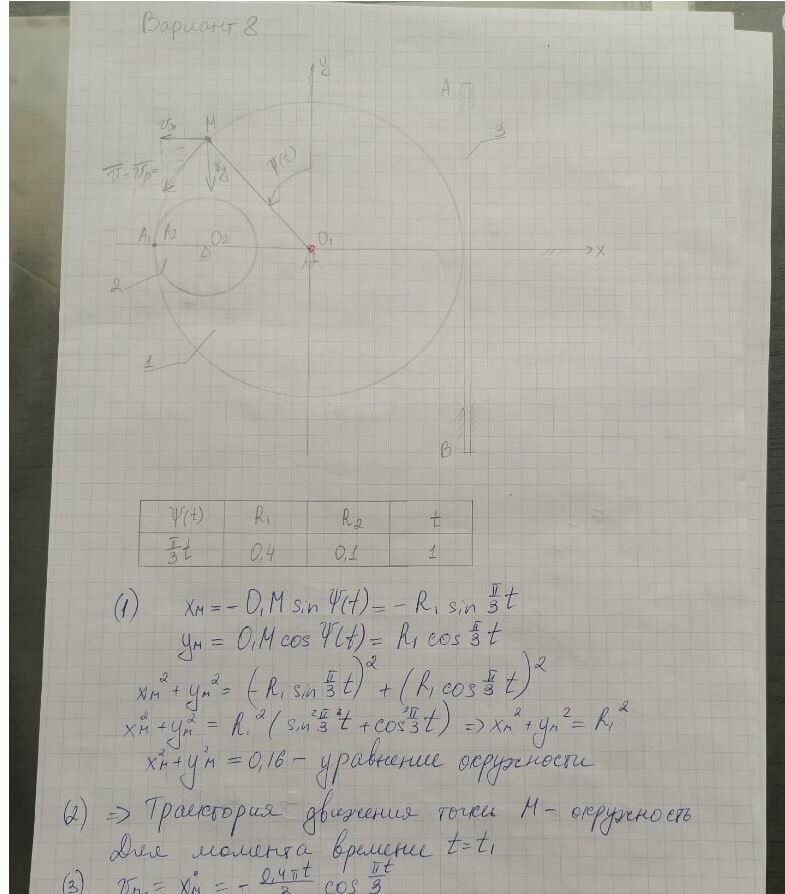 Вариант 8
y
A
M
vx
3
ψ(t)
v̄ = v̄p =
vy
A1 A2
O2
O1
x
2
1
B
Ψ(t) R1 R2 t
π/3 t 0,4 0,1 1
(1) xм = - O1M sin Ψ(t) = - R1 sin π/3 t
yм = O1M cos Ψ(t) = R1 cos π/3 t
xм² + yм² = (- R1 sin π/3 t)² + (R1 cos π/3 t)²
xм² + yм² = R1² (sin² π/3 t + cos² π/3 t) ⇒ xм² + yм² = R1²
xм² + yм² = 0,16 - уравнение окружности
(2) ⇒ Траектория движения точки М - окружность
Для момента времение t = t1
(3) = ẋм = - 0,4πt/3 cos πt/3